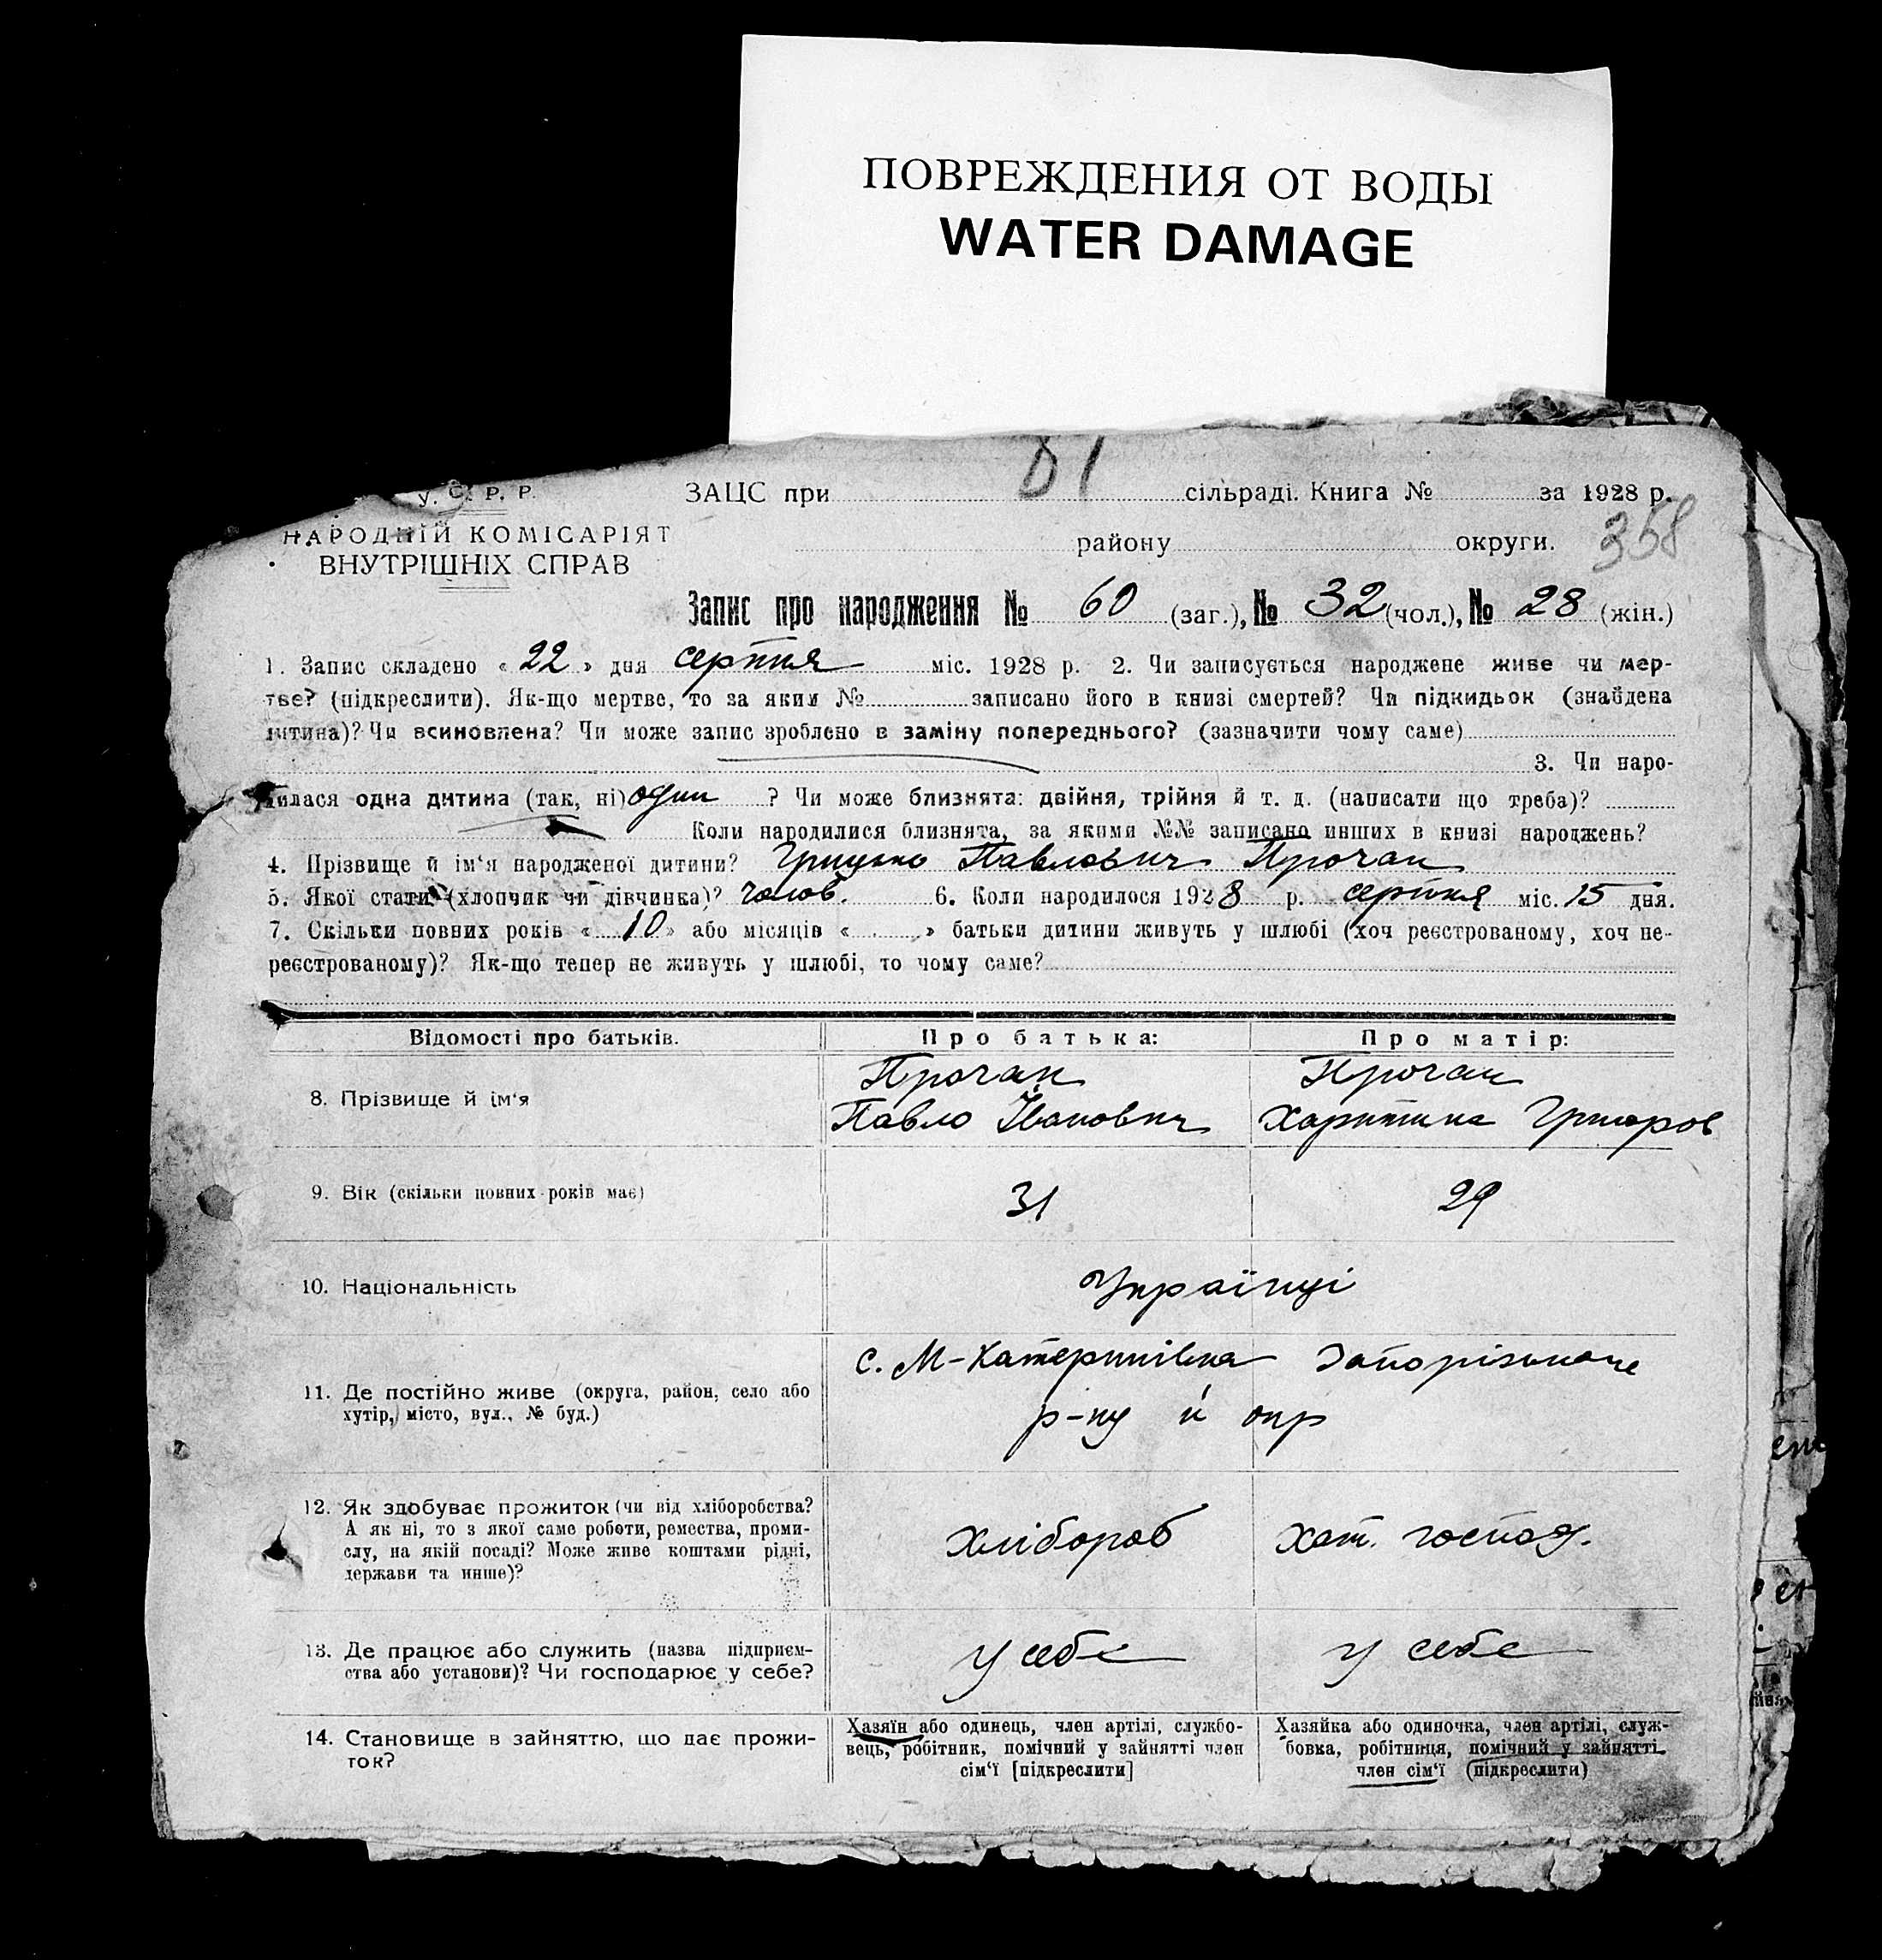 ПОВРЕЖДЕНИЯ ОТ ВОДЫ
WATER DAMAGE
81
У. С. Р. Р. ЗАЦС при сільраді. Книга № за 1928 р.
358
НАРОДНІЙ КОМІСАРІЯТ району округи.
ВНУТРІШНІХ СПРАВ
Запис про народження № 60 (заг.), № 32 (чол.), № 28 (жін.)
1. Запис складено « 22 » дня серпня міс. 1928 р. 2. Чи записується народжене живе чи мер-
тве? (підкреслити). Як-що мертве, то за яким № записано його в книзі смертей? Чи підкидьок (знайдена
дитина)? Чи всиновлена? Чи може запис зроблено в заміну попереднього? (зазначити чому саме)
3. Чи наро-
дилася одна дитина (так, ні) один ? Чи може близнята: двійня, трійня й т. д. (написати що треба)?
Коли народилися близнята, за якими №№ записано инших в книзі народжень?
4. Прізвище й ім‘я народженої дитини? Грицько Павлович Прочан
5. Якої стати (хлопчик чи дівчинка)? чолов. 6. Коли народилося 1928 р. серпня міс. 15 дня.
7. Скільки повних років « 10 » або місяців « » батьки дитини живуть у шлюбі (хоч реєстрованому, хоч не-
реєстрованому)? Як-що тепер не живуть у шлюбі, то чому саме?
Відомості про батьків. Про батька: Про матір:
8. Прізвище й ім‘я
Прочан
Павло Іванович
Прочан
Харитина Григоров
9. Вік (скільки повних років має) 31 29
10. Національність Українці
11. Де постійно живе (округа, район, село або
хутір, місто, вул., № буд.)
с. М-Катеринівка Запорізького
р-ну й окр
12. Як здобуває прожиток (чи від хліборобства?
А як ні, то з якої саме роботи, ремества, проми-
слу, на якій посаді? Може живе коштами рідні,
держави та инше)?
Хлібороб Хат. господ.
13. Де працює або служить (назва підприєм-
ства або установи)? Чи господарює у себе?
у себе у себе
14. Становище в зайняттю, що дає прожи-
ток?
Хазяїн або одинець, член артілі, службо-
вець, робітник, помічний у зайнятті член
сім‘ї [підкреслити]
Хазяйка або одиночка, член артілі, служ-
бовка, робітниця, помічний у зайнятті
член сім‘ї (підкреслити)